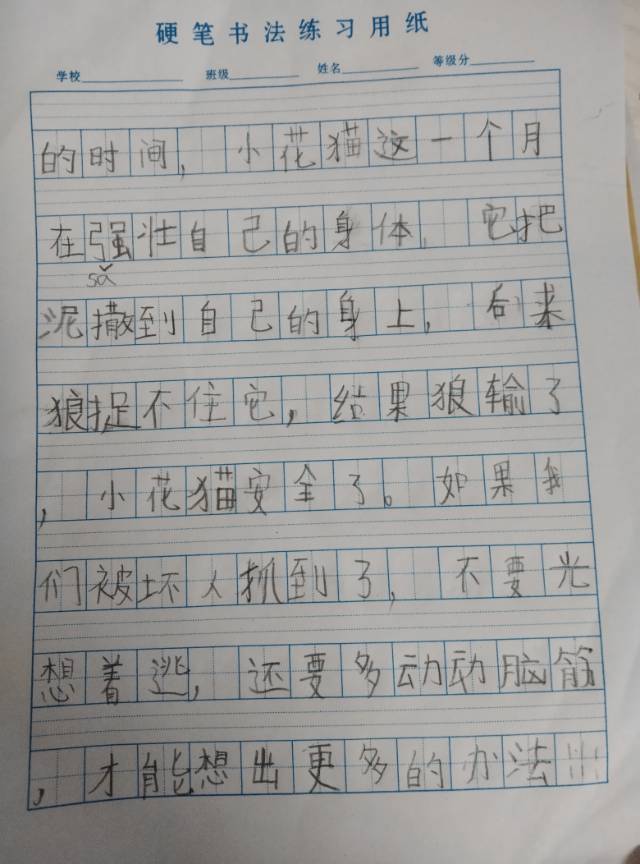 硬笔书法练习用纸
学校 班级 姓名 等级分
的时间，小花猫这一个月
在强壮自己的身体，它把
sǎ
泥撒到自己的身上，后来
狼捉不住它，结果狼输了
，小花猫安全了。如果我
们被坏人抓到了，不要光
想着逃，还要多动动脑筋
，才能想出更多的办法!!!